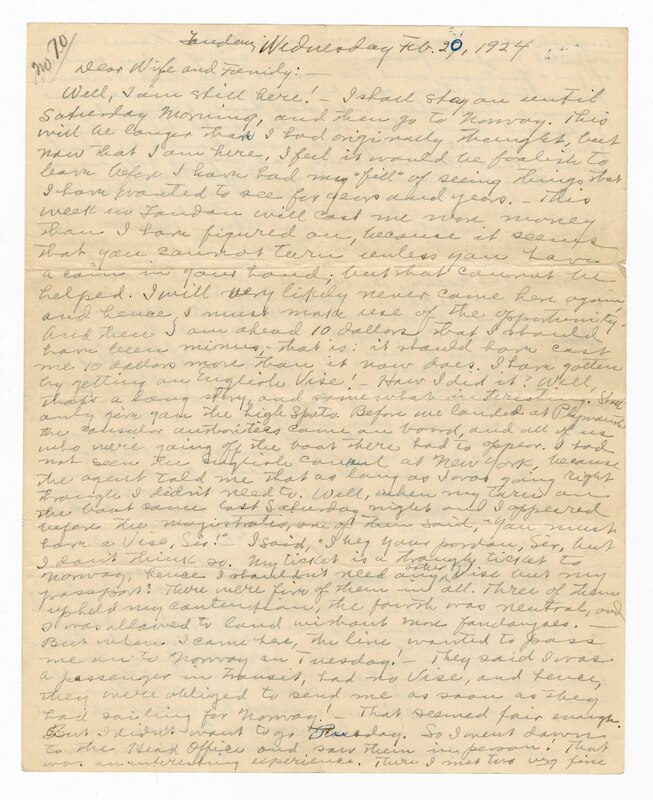 No 70
London, Wednesday Feb. 20, 1924
Dear Wife and Family: —
Well, I am still here! — I shall stay on until
Saturday Morning, and then go to Norway. This
will be longer than I had originally thought, but
now that I am here, I feel it would be foolish to
leave before I have had my "fill" of seeing things that
I have wanted to see for years and years. — This
week in London will cost me more money
than I have figured on, because it seems
that you cannot turn unless you have
a coin in your hand; but that cannot be
helped. I will very likely never come here again,
and hence, I must make use of the opportunity.
And then I am ahead 10 dollars that I should
have been minus; that is: it should have cost
me 10 dollars more than it now does. I have gotten
by getting an English Vise! — How I did it? Well,
that's a long story, and some what interesting. Shall
only give you the high Spots. Before we landed at Plymouth
the consular authorities came on board, and all of us
who were going off the boat there had to appear. I had
not seen the English Consul at New York, because
the agent told me that as long as I was going right
through I didn't need to. Well, when my turn on
the boat came last Saturday night and I appeared
before the magistrates, one of them said, "You must
have a Vise, Sir!" — I said, "I beg your pardon, Sir, but
I don't think so. My ticket is a through ticket to
Norway, hence I shouldn't need any other Vise but my
passport! There were five of them in all. Three of them
upheld my contention, the fourth was neutral, and
I was allowed to land without more fandangoes. —
But when I came here, the line wanted to pass
me on to Norway on Tuesday! — They said I was
a passenger in transit, had no Vise, and hence,
they were obliged to send me as soon as they
had sailing for Norway! — That seemed fair enough.
But I didn't want to go Tuesday. So I went down
to the Head Office and saw them in person. That
was an interesting experience. There I met two very fine